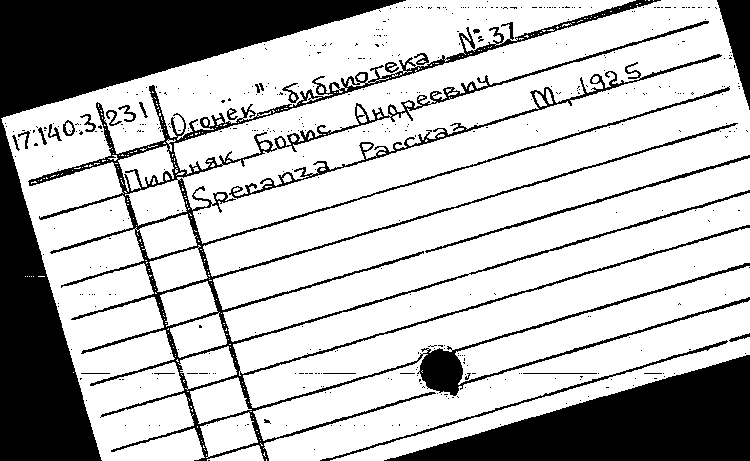 17.140.3.231 "Огонёк" библиотека, №37
Пильняк, Борис Андреевич
Speranza. Рассказ. М., 1925.